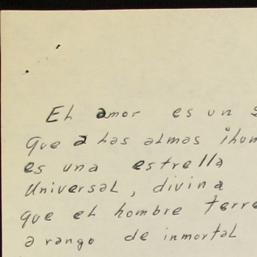 El amor es un s
Que a las almas ihum
es una estrella
Universal, divina
que el hombre terre
a rango de inmortal